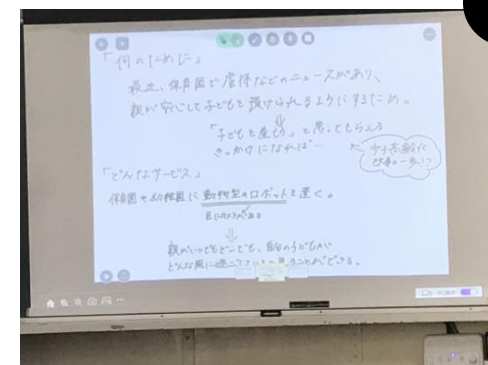 「何のために」
最近、保育園で虐待などのニュースがあり、
親が安心して子どもを預けられるようにするため。
⇓
「子どもを産もう」と思ってもらえる
きっかけになれば…
少子高齢化
改善の一歩!?
「どんなサービス」
保育園や幼稚園に動物型のロボットを置く。
目にカメラがある
⇓
親がいつでもどこでも、自分の子どもが
どんな風に過ごしているか見ることができる。